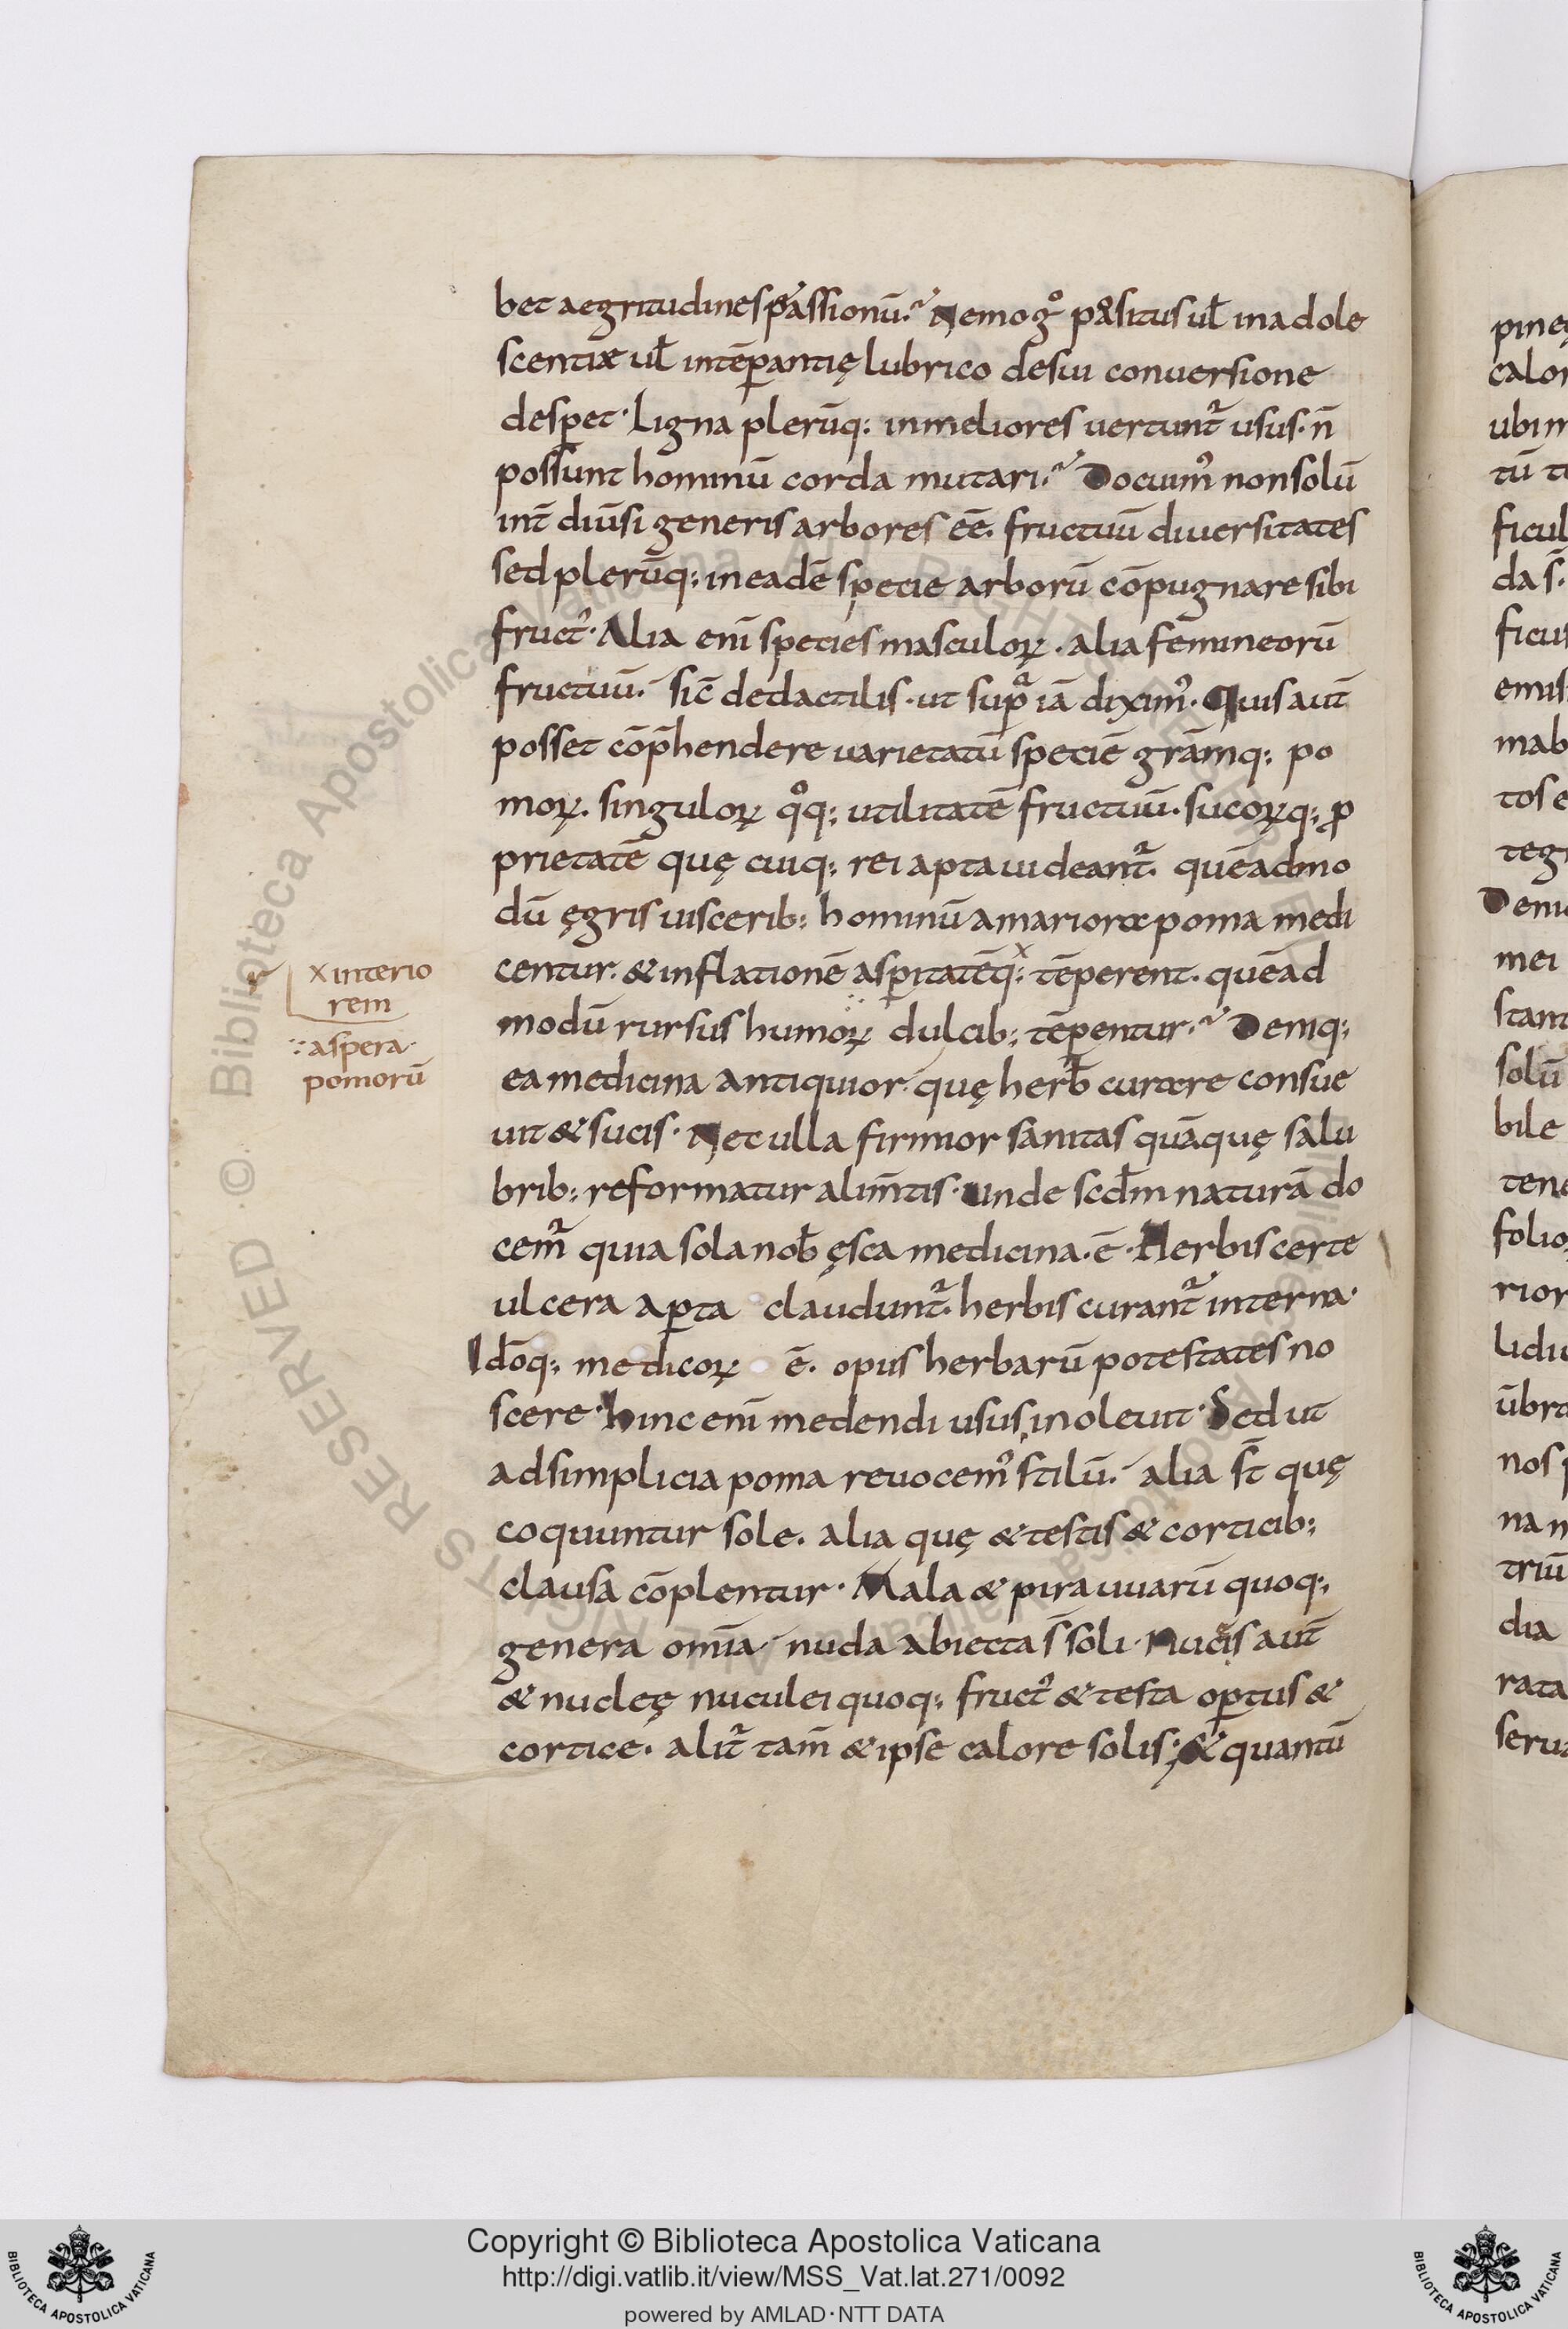 bet aegritudines passionū. Nemo gͦ positus ul̄ in adole
scentiae ul̄ intēperantię lubrico desui conuersione
desperet. Ligna plerūq: in meliores uertunt̃ usus. n̄
possunt hominū corda mutari. Docuim᾿ non solū
int̄ diūsi generis arbores eē. fructuū diuersitates
sed plerūq: in eadē specie arborū cōpugnare sibi
fruct᾿. Alia eni̅ species masculoꝝ. alia fēmineorū
fructuū. sic̄ de dactilis. ut supͣ iā dixim᾿. Quis aut̄
posset cōp̄hendere uarietatū speciē grāmq: po
moꝝ. singuloꝝ qͦq: utilitatē fructuū. sucoꝝq: ꝓ
prietatē quę cuiq: rei apta uideant̃. quēadmo
dū ęgris uiscerib: hominū amariora poma medi
centur. & inflationē asꝑitatēq: tēperent. quēad
modū rursus humoꝝ dulcib: tēꝑentur. Deniq:
ea medicina antiquior. quę herb̄ curare consue
uit & sucis. Nec ulla firmior sanitas quā quę salu
brib: reformatur alim̄tis. Unde scd̄m naturā do
cem̃ quia sola nob̄ ęsca medicina. ē. Herbis certe
ulcera aꝑta claudunt̃. herbis curant̃ interna.
Idōq: medicoꝝ ē. opus herbarū potestates no
scere. hinc eni̅ medendi usus inoleuit. Sed ut
ad simplicia poma reuocem᾿ stilū. alia st̄ quę
coquuntur sole. alia quę & testis & corticib:
clausa cōplentur. Mala & pira uuarū quoq:
genera omīa nuda abiecta s̄ soli. Nucis aut̄
& nucleę nuculei quoq: fruct᾿ & testa oꝑtus &
cortice. alit̃ tam̄ & ipse calore solis; & quantū
x interio
rem
aspera
pomorū
pinę
calor
ubi m
tū
ficul
da s̄.
ficus
emis
mab
tos e
teg
Deni
mei
stant
solū
bile
tene
folio
rior
lidi
ūbra
nos
na
triū
dia
rata
serua
© Biblioteca Apostolica Vaticana ALL RIGHTS RESERVED
Copyright © Biblioteca Apostolica Vaticana
http://digi.vatlib.it/view/MSS_Vat.lat.271/0092
powered by AMLAD·NTT DATA
BIBLIOTECA APOSTOLICA VATICANA
BIBLIOTECA APOSTOLICA VATICANA